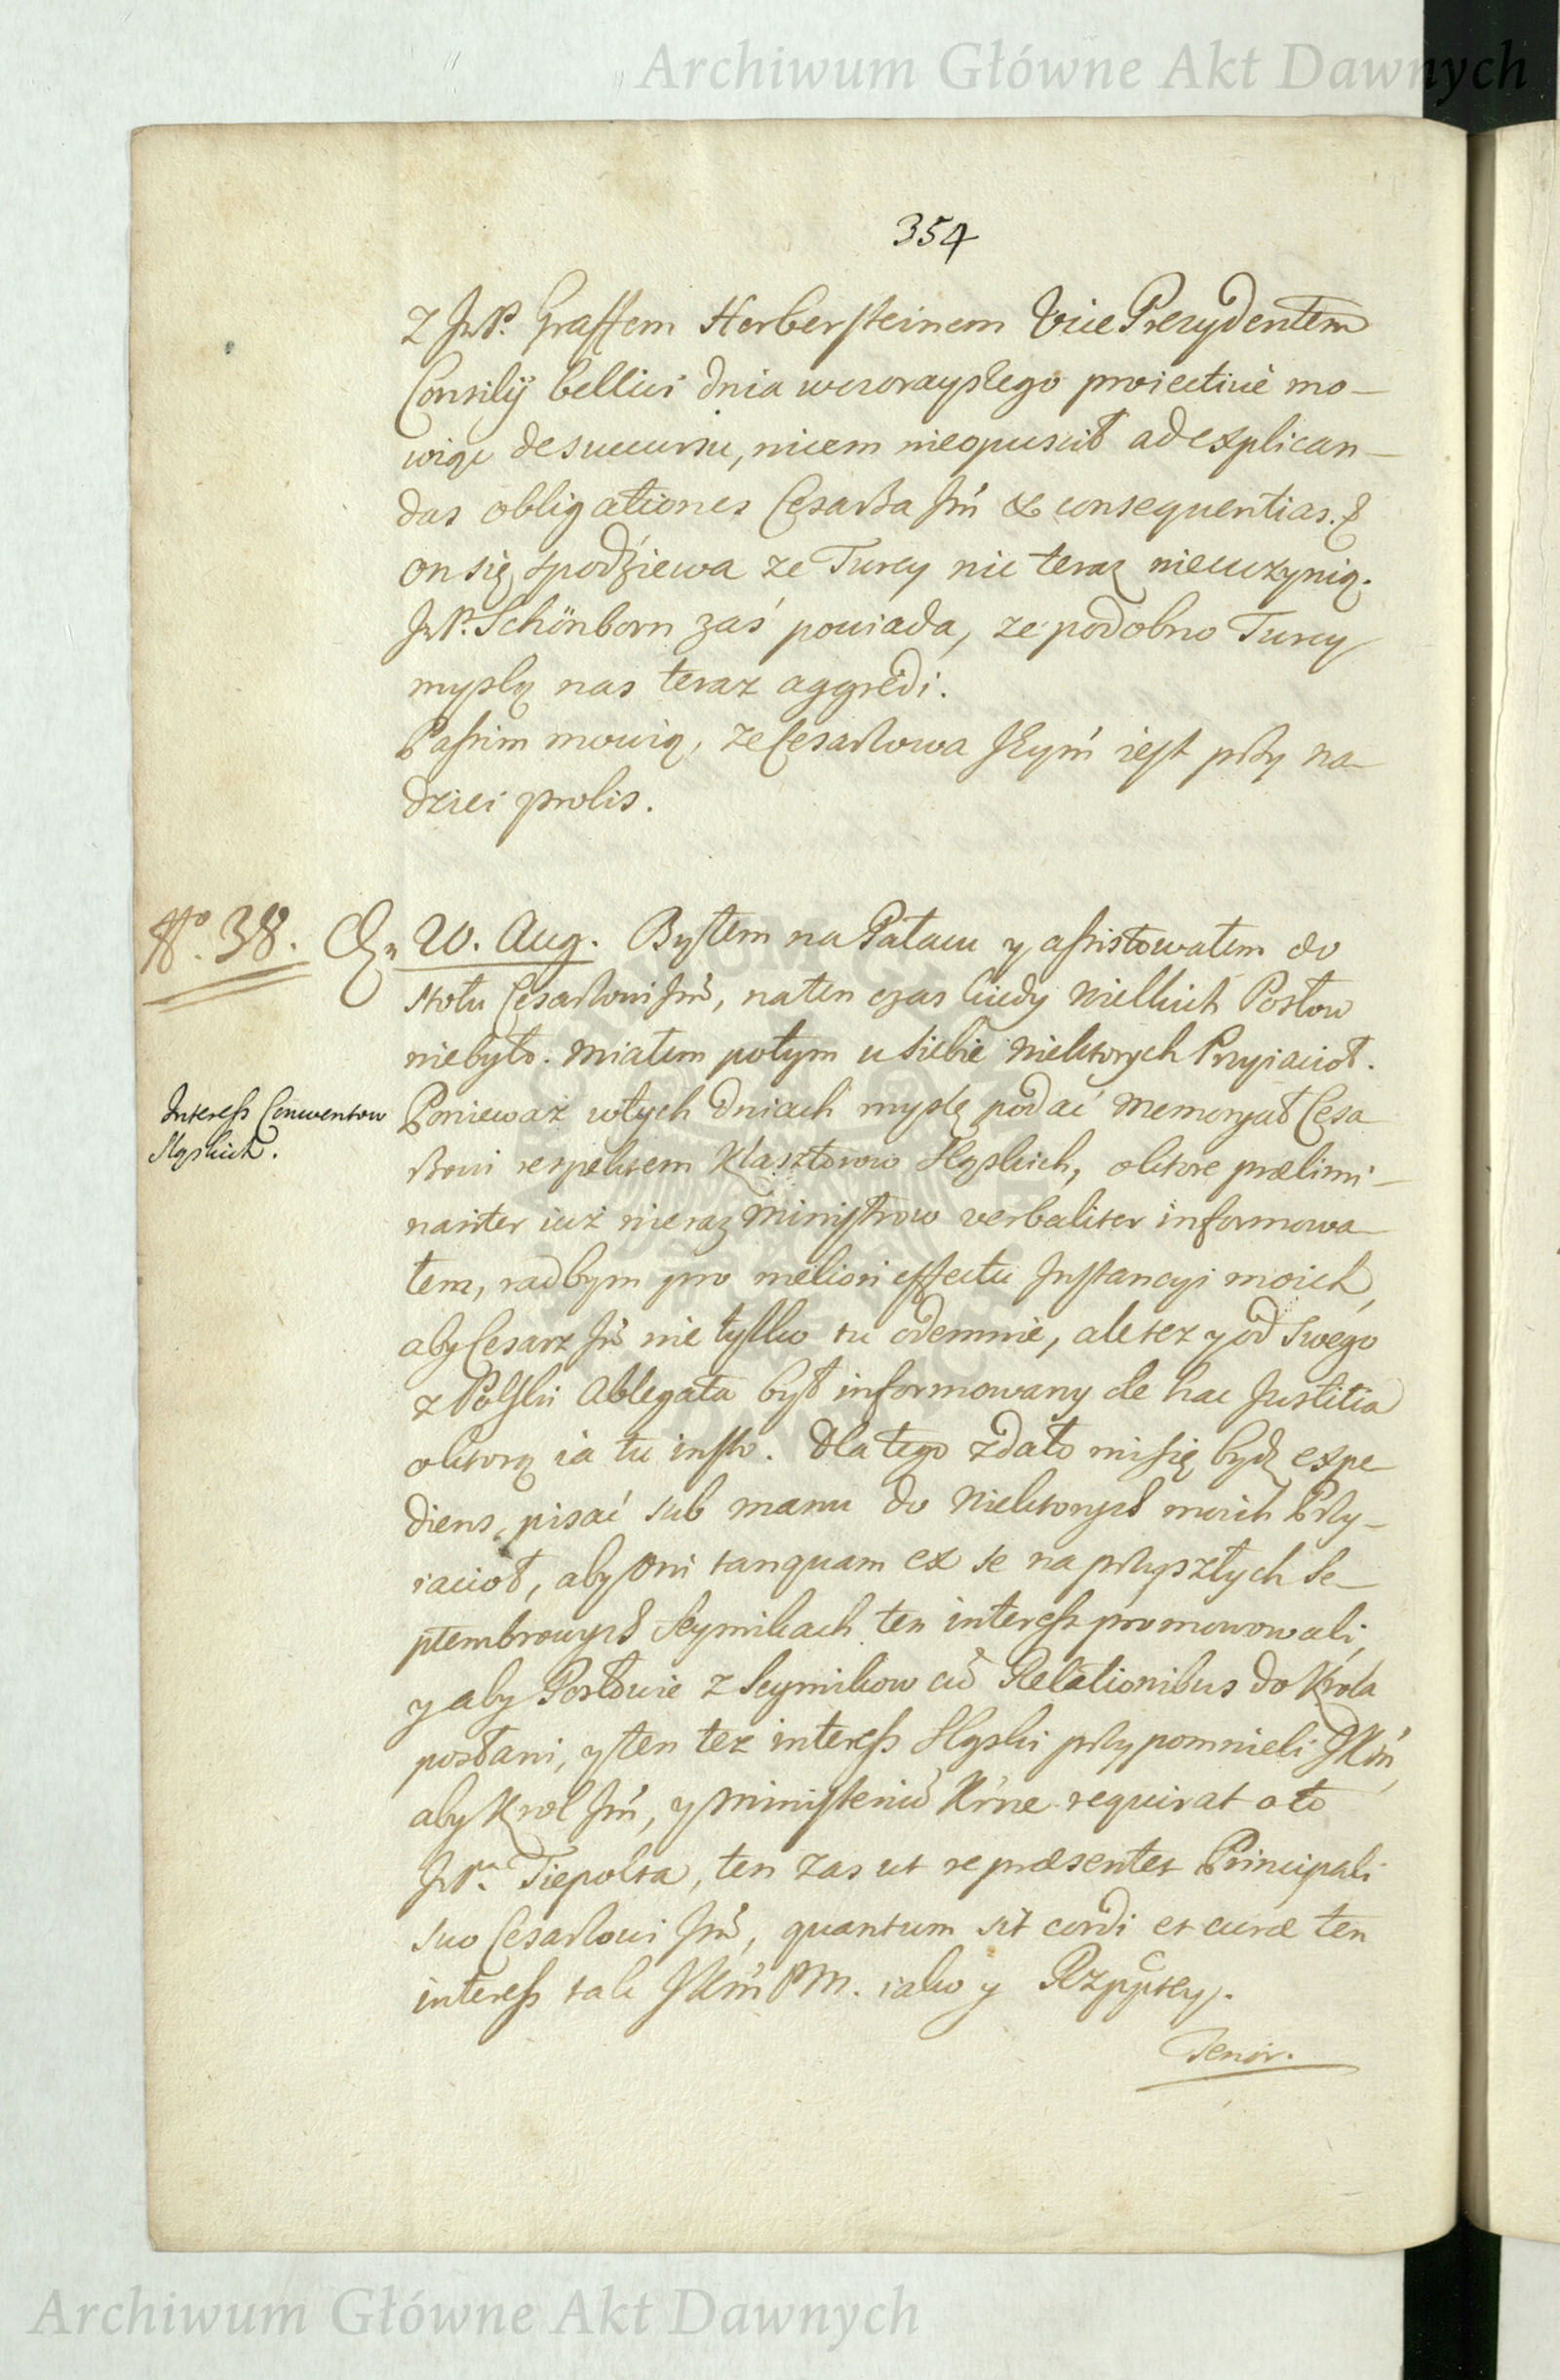 Archiwum Główne Akt Dawnych
354
Z JxP. Graffem Herbersteinem Vice Prezydentem
Consilij bellici dnia wczorayszego proiective mo-
wiąc de succursu, niczem nieopuscił ad explican-
das obligationes Cesarza Jm̃ & consequentias. &
on się spodziewa ze Turcy nic teraz nieuczynią.
JxP. Schönborn zaś powiada, ze podobno Turcy
myslą nas teraz aggredi.
Passim mowią, ze Cesarzowa Jeym̃ iest przy na-
dziei prolis.
No. 38. 20. Aug. Byłem na Pałacu y assistowałem do
stołu Cesarzowi Jm̃, na ten czas kiedy wielkich Posłow
niebyło. Miałem potym u siebie niektorych Przyiacioł.
Interess Conwentow
Sląskich.
Ponieważ w tych dniach myslę podać Memoryał Cesa
rzowi respektem Klasztorow Sląskich, o ktore prælimi-
nariter iuż nieraz Ministrow verbaliter informowa-
łem, radbym pro meliori effectu Instancyi moich,
aby Cesarz Jm̃ nie tylko tu odemnie, ale tez y od swego
z Polski Ablegata był informowany de hac Justitia
o ktorą ia tu insto. Dla tego zdało mi się bydź expe-
diens, pisać sub manu do niektorych moich Przy-
iacioł, aby oni tanquam ex se na przyszłych Se-
ptembrowych Seymikach ten interess promowowali,
y aby Posłowie z Seymikow cũ Relationibus do Krola
posłani, y ten tez interess Sląski przypomnieli JKm̃,
aby Krol Jm̃, y Ministeriũ Krnе requirat o to
JxPa. Tiepolta, ten zas ut repræsentet Principali
suo Cesarzowi Jm̃, quantum sit cordi et curæ ten
interess tak JKm̃ PM. iako y Rzpltey.
Tenor.
Archiwum Główne Akt Dawnych